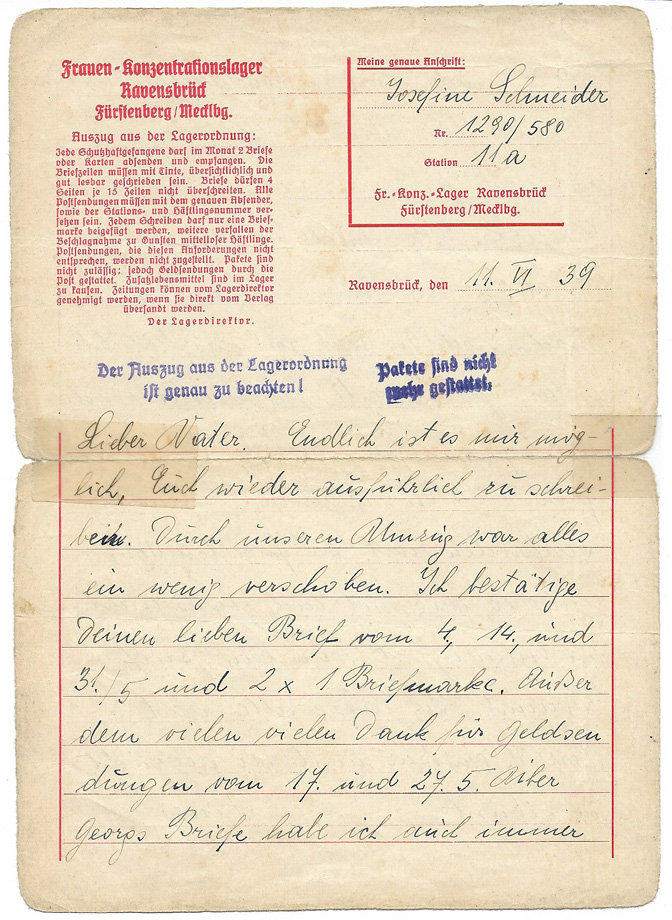 Frauen-Konzentrationslager
Ravensbrück
Fürstenberg/Mecklbg.
Auszug aus der Lagerordnung:
Jede Schutzhaftgefangene darf im Monat 2 Briefe
oder Karten absenden und empfangen. Die
Briefzeilen müssen mit Tinte, übersichtlich und
gut lesbar geschrieben sein. Briefe dürfen 4
Seiten je 15 Zeilen nicht überschreiten. Alle
Postsendungen müssen mit dem genauen Absender,
sowie der Stations- und Häftlingsnummer ver-
sehen sein. Jedem Schreiben darf nur eine Brief-
marke beigefügt werden, weitere verfallen der
Beschlagnahme zu Gunsten mittelloser Häftlinge.
Postsendungen, die diesen Anforderungen nicht
entsprechen, werden nicht zugestellt. Pakete sind
nicht zulässig; jedoch Geldsendungen durch die
Post gestattet. Zusatzlebensmittel sind im Lager
zu kaufen. Zeitungen können vom Lagerdirektor
genehmigt werden, wenn sie direkt vom Verlag
übersandt werden.
Der Lagerdirektor.
Meine genaue Anschrift:
Josefine Schneider
Nr. 1290/580
Station 11a
Fr.-Konz.-Lager Ravensbrück
Fürstenberg/Mecklbg.
Ravensbrück, den 11. VI 39
Der Auszug aus der Lagerordnung
ist genau zu beachten!
Pakete sind nicht
mehr gestattet.
Lieber Vater. Endlich ist es mir mög-
lich, Euch wieder ausführlich zu schrei-
ben. Durch unseren Umzug war alles
ein wenig verschoben. Ich bestätige
Deinen lieben Brief vom 4, 14, und
31./5 und 2 x 1 Briefmarke. Außer
dem vielen vielen Dank für Geldsen
dungen vom 17. und 27. 5. Aber
Georgs Briefe habe ich auch immer